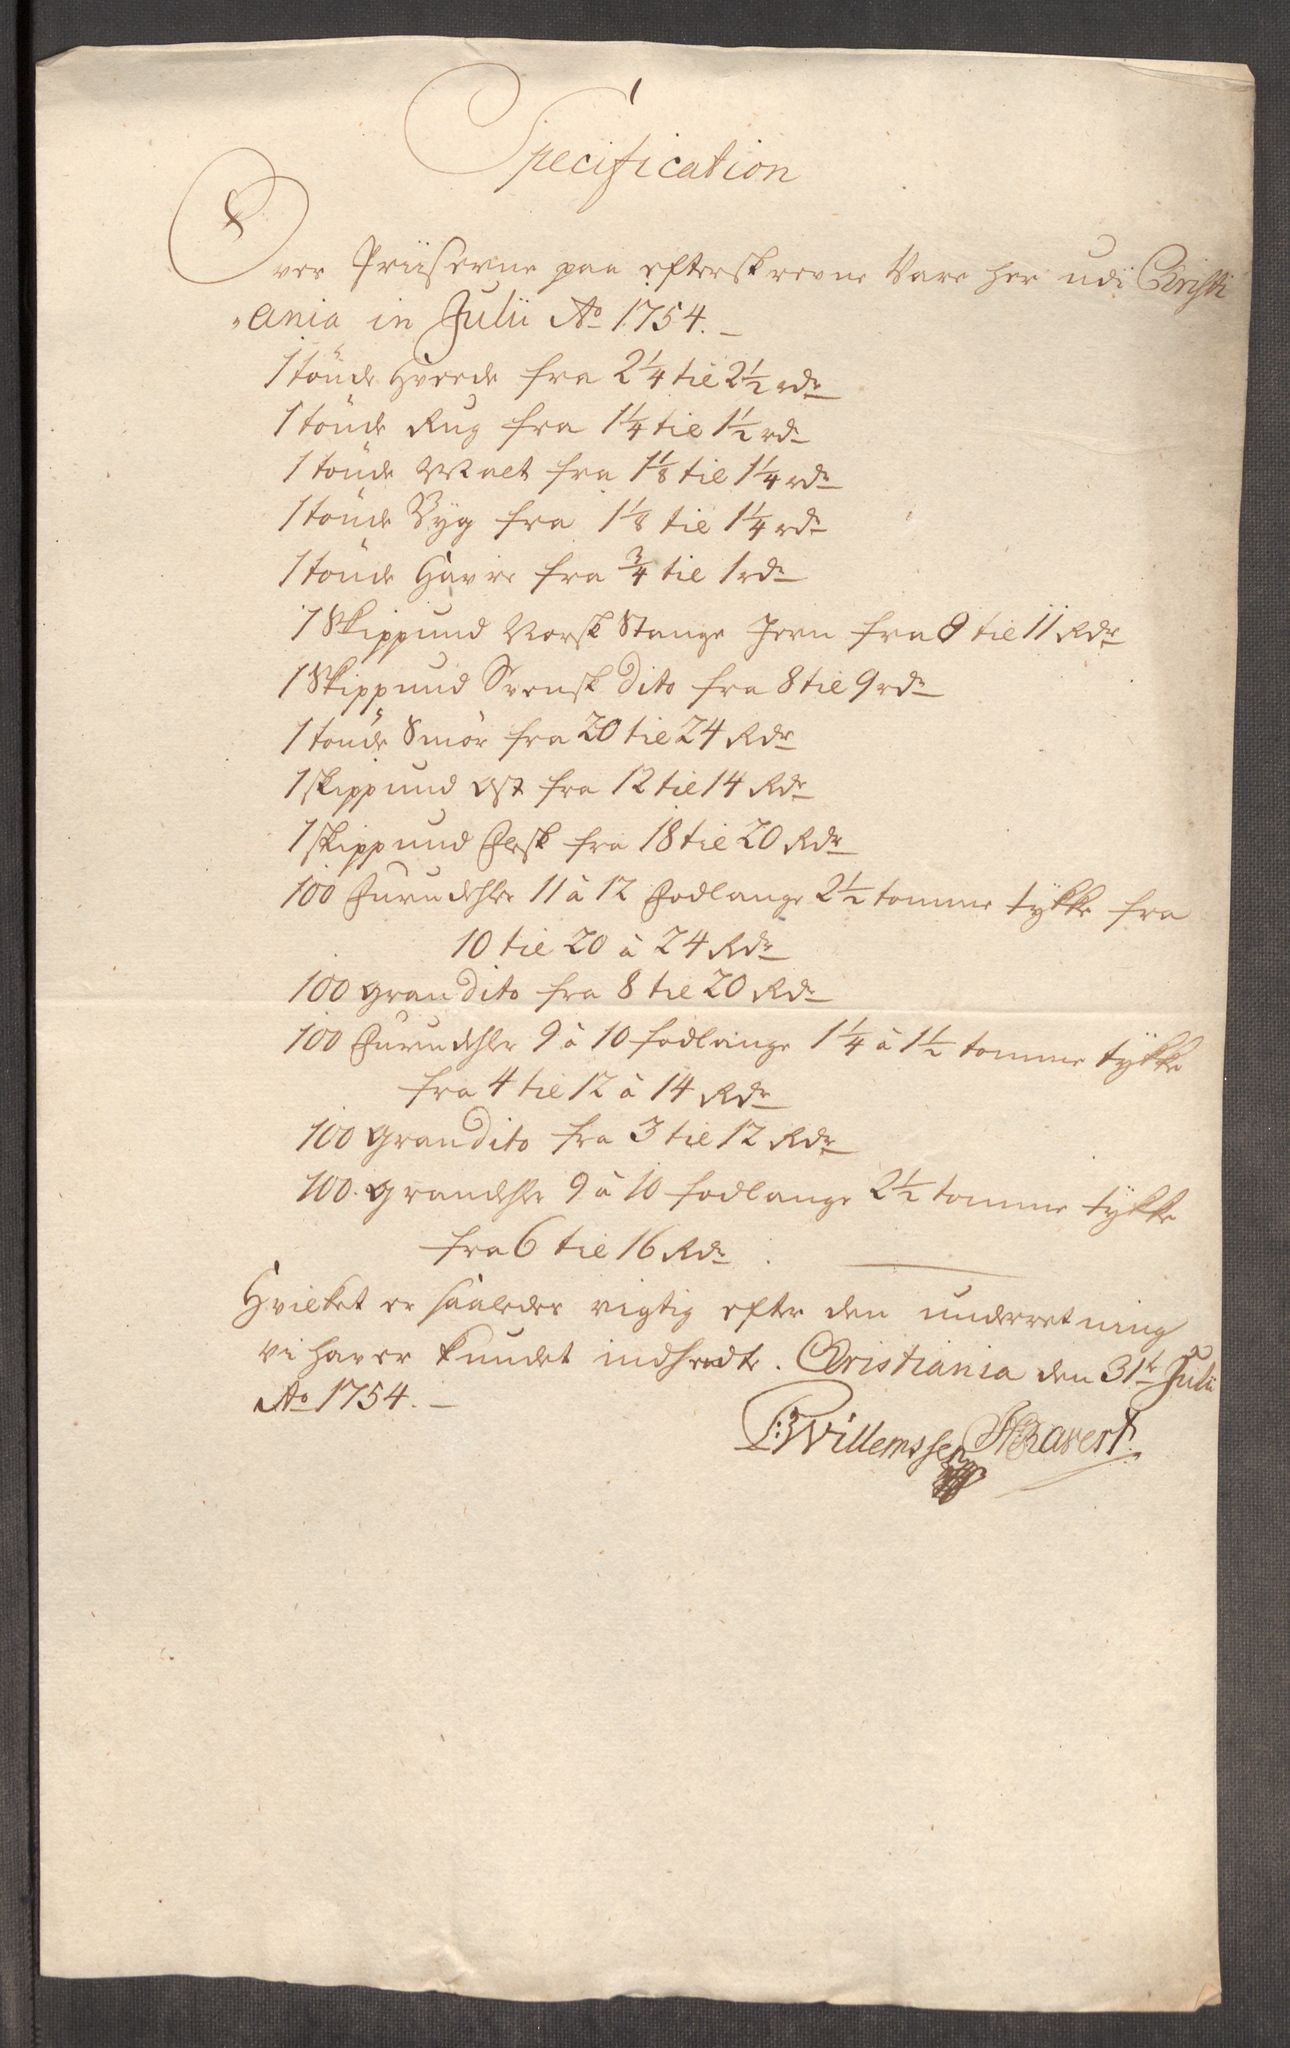 Specification
Over Priiserne paa efterskrevne Vare her udi Christi
-ania in Julii Ao 1754.
1 tönde Hvede fra 2 1/4 til 2 1/2 rdr
1 tönde Rug fra 1 1/4 til 1 1/2 rdr
1 tönde Malt fra 1 1/8 til 1 1/4 rdr
1 tönde Byg fra 1 1/8 til 1 1/4 rdr
1 tönde Havre fra 3/4 til 1 rdr
1 Skippund Norsk Stange Jern fra til 11 Rdr
1 Skippund Svensk Dito fra 8 til 9 rdr
1 tönde Smör fra 20 til 24 Rdr
1 skippund Ost fra 12 til 14 Rdr
1 skippund Flesk fra 18 til 20 Rdr
100 Furudehler 11 à 12 Fodlange 2 1/2 tomme tykke fra
10 til 20 à 24 Rdr
100 gran Dito fra 8 til 20 Rdr
100 Furudehler 9 à 10 fodlange 1 1/4 à 1 1/2 tomme tykke
fra 4 til 12 à 14 Rdr
100 gran Dito fra 3 til 12 Rdr
100. grandehler 9 à 10 fodlange 2 1/2 tomme tykke
fra 6 til 16 Rdr
Hvilket er saaledes rigtig efter den underretning
vi haver kundet indhendte. Christiania den 31te Julii
Ao 1754.
Willemssen Ravert